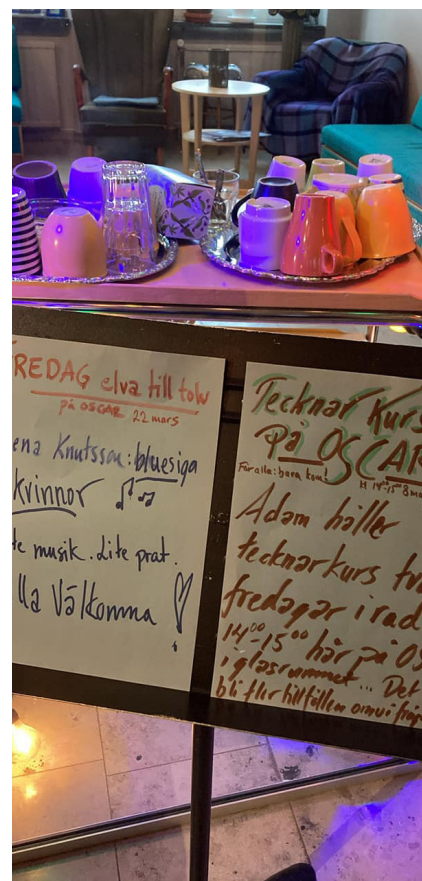 REDAG elva till tolv
på OSCAR 22 mars
ena Knutsson: bluesiga
kvinnor
te musik. Lite prat.
lla Välkomna
Tecknar Kurs
På OSCAR
För alla: bara kom!
Adam håller
tecknarkurs två
fredagar i rad
14⁰⁰-15⁰⁰ här på OS
i glasrummet... Det
bli fler tillfällen om vi